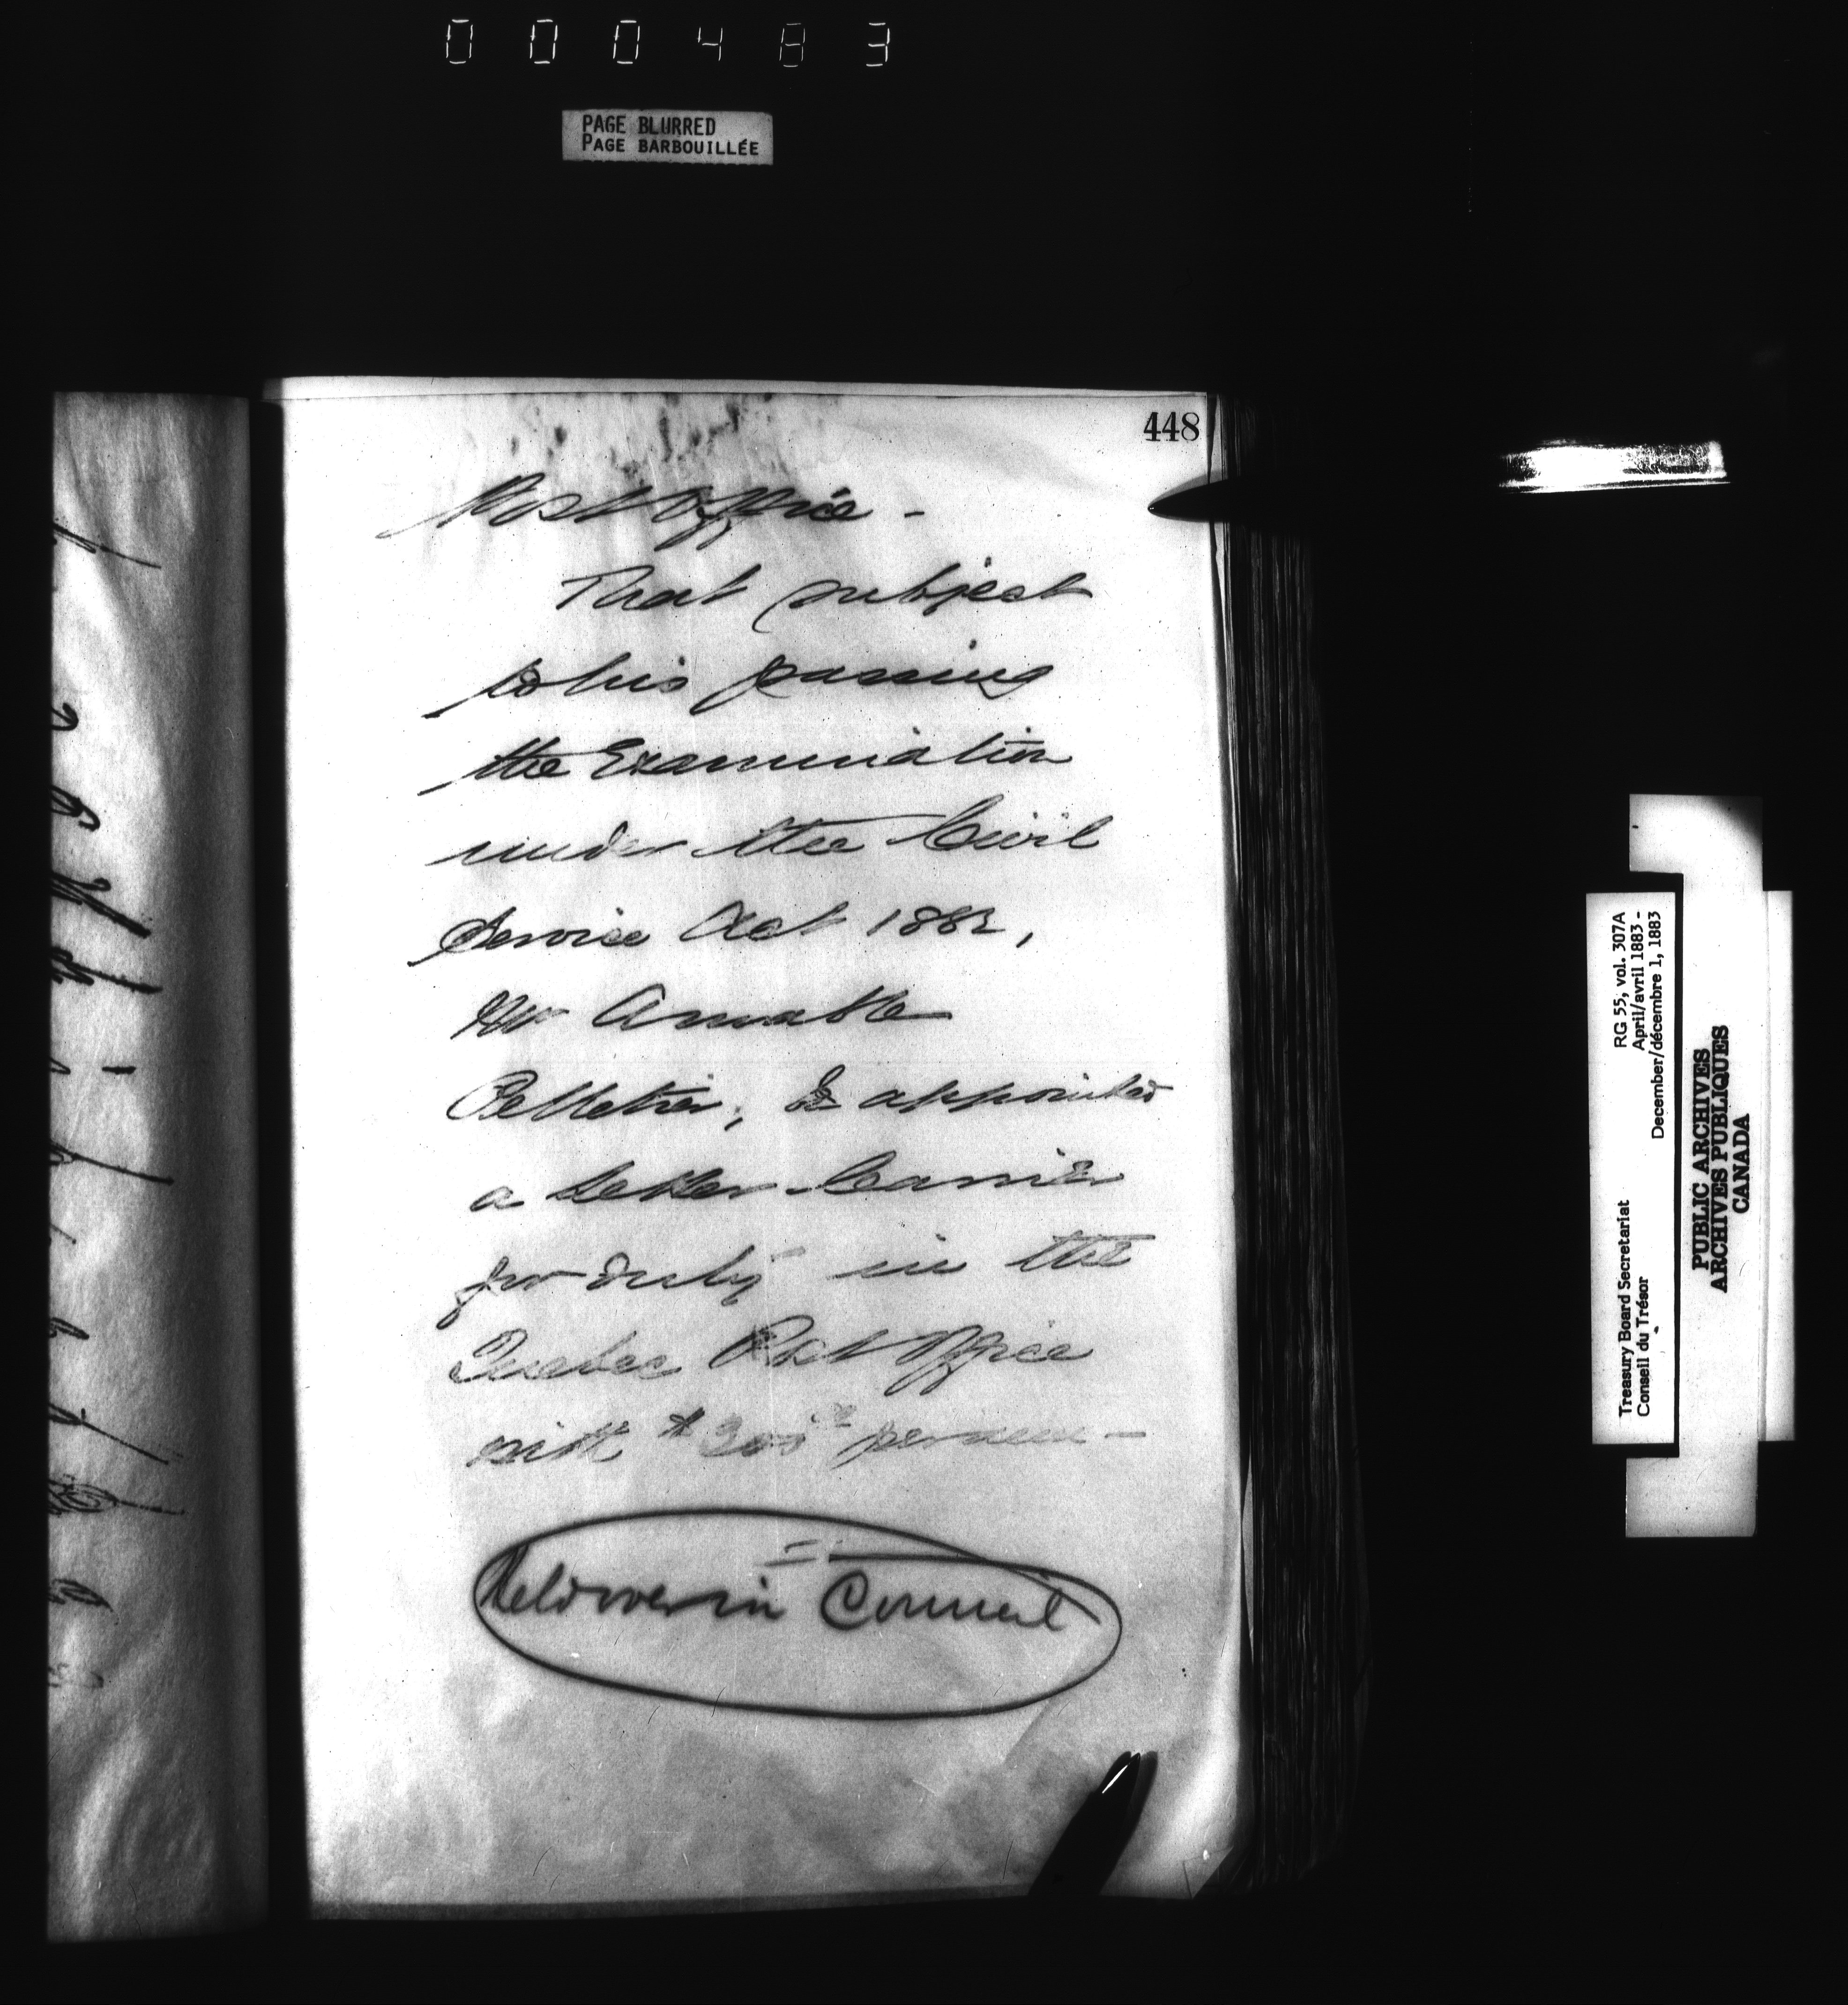 000483
PAGE BLURRED
PAGE BARBOUILLÉE
448
Post Office -
That subject
to his passing
the Examination
under the Civil
Service Act 1882,
Mr Amable
Pelletier, be appointed
a Letter Carrier
for duty in the
Quebec Post Office
with $300 per ann -
Held over in Council
RG 55, vol. 307A
April/avril 1883 -
December/décembre 1, 1883
Treasury Board Secretariat
Conseil du Trésor
PUBLIC ARCHIVES
ARCHIVES PUBLIQUES
CANADA